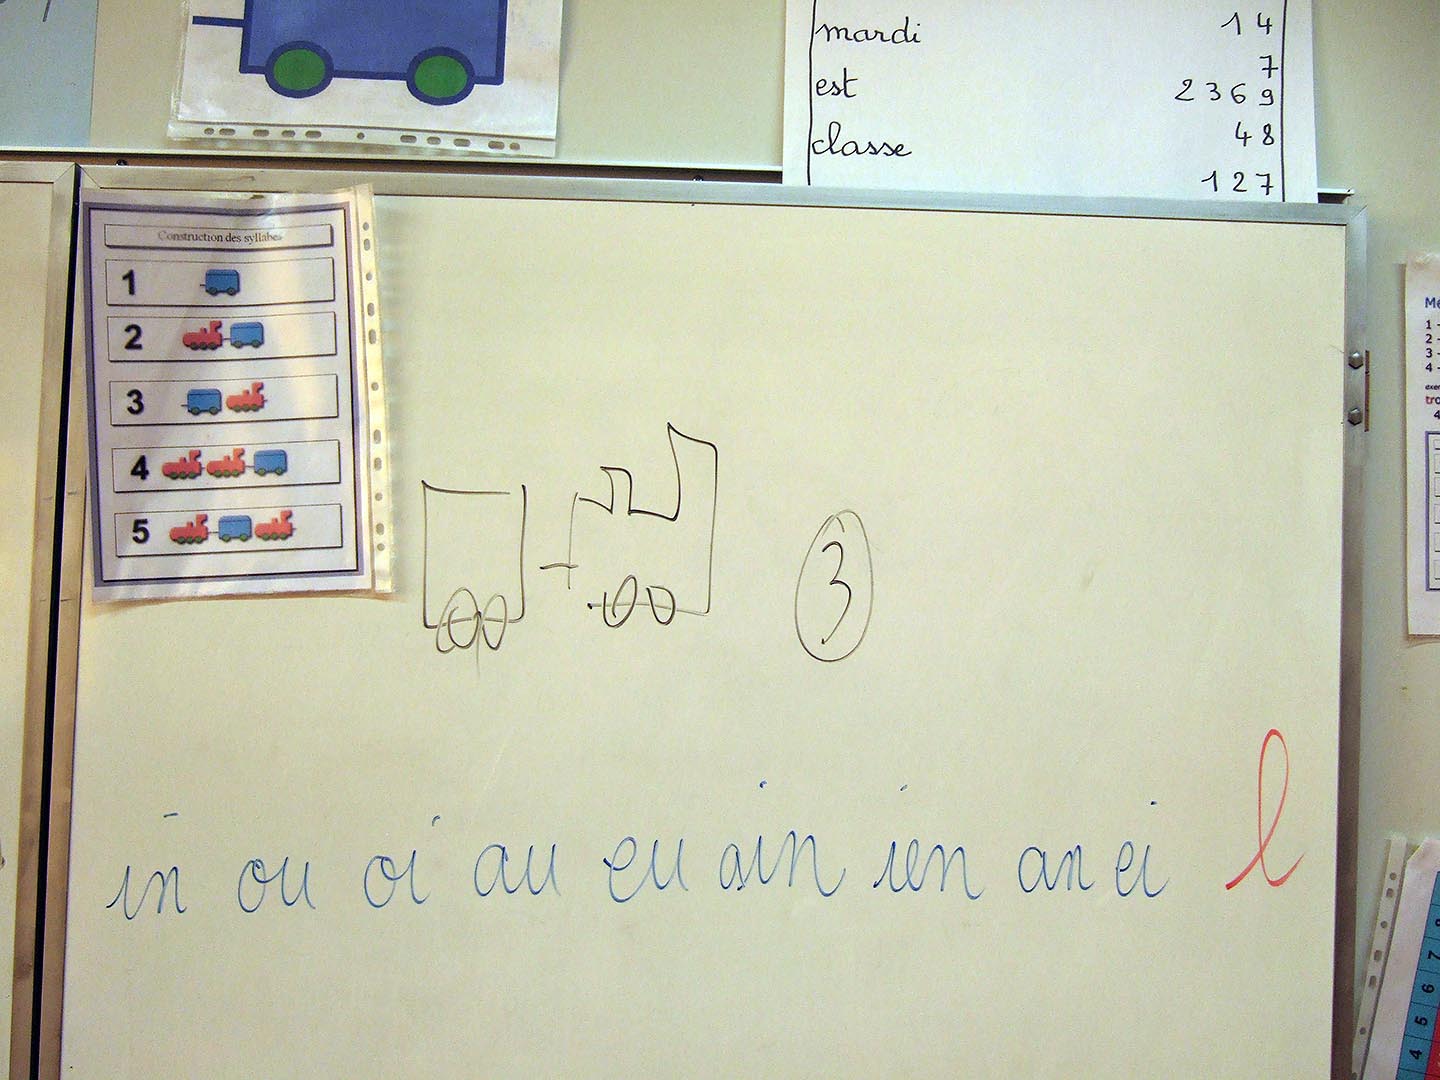 mardi 14
7
est 2369
classe 48
127
Construction des syllabes
1
2
3
4
5
3
in ou oi au eu ain ien an ei l
1 -
2 -
3 -
4 -
4
7
6
5
4